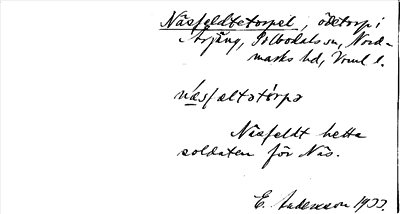 Näsfeldtetorpet, ödetorp i
Årjäng, Silbodals sn, Nord-
marks hd, Vrml l.
näsfæltətårpə
Näsfeldt hette
soldaten för Näs.
E. Andersson 1933.